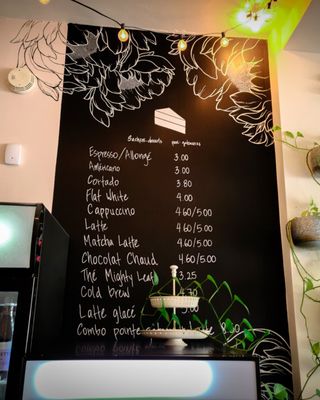 Espresso/Allongé 3.00
Américano 3.00
Cortado 3.80
Flat White 4.00
Cappuccino 4.60/5.00
Latte 4.60/5.00
Matcha Latte 4.60/5.00
Chocolat Chaud 4.60/5.00
Thé Mighty Leaf 3.25
Cold brew 4.70
Latte glacé
Combo pointe 8.00